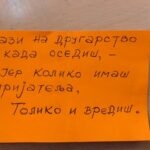 ази на другарство
када оседиш, –
јер колико имаш
ријатеља,
Толико и вредиш.